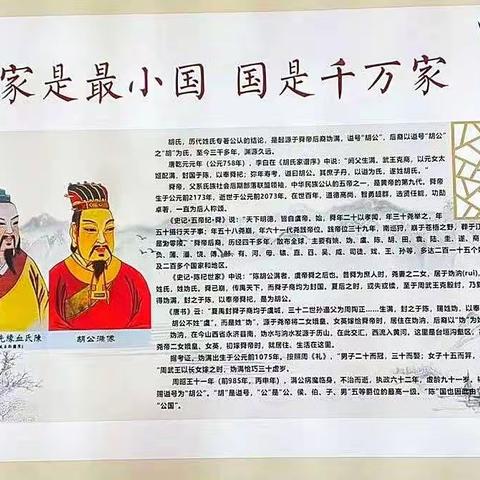 家是最小国 国是千万家
胡氏，历代姓氏专著公认的结论，是起源于舜帝后裔妫满，谥号“胡公”，后裔以谥号“胡公”
之“胡”为氏，至今三千多年，渊源久远。
唐乾元元年（公元758年），李白在《胡氏家谱序》中说：“阏父生满，武王克商，以元女太
姬配满，封国于陈，以奉舜祀；弥年寿考，谥曰胡公。其庶子丹，以谥为氏，遂姓胡氏。”
舜帝，父系氏族社会后期部落联盟领袖，中华民族公认的五帝之一，是黄帝的第九代。舜帝
生于公元前2173年，逝世于公元前2073年，在世百年，道德高尚，智勇超群，选贤任能，功勋
卓著，一直为后人称颂。
《史记·五帝纪·舜》说：“天下明德，皆自虞帝，始，舜年二十以孝闻，年三十尧举之，年
五十摄行天子事；年五十八尧崩，年六十一代尧践帝位，践帝位三十九年，南巡狩，崩于苍梧之野，葬于江
是为零陵。”舜帝后裔，历经四千多年，放布全球，主要有姚、妫、虞、陈、胡、田、袁、陆、
及二百多个国家和地区。
《史记·陈杞世家》中说：“陈胡公满者，虞帝舜之后也，昔舜为庶人时，尧妻之二女，居于妫汭(rui)，
姓氏，姓妫氏。舜已崩，传禹天下，而舜子商均为封国，夏后之时，或失或续，至于周武王克殷纣，乃
得妫满，封之于陈，以奉帝舜祀，是为胡公。
《唐书》云：“夏禹封舜子商均于虞城，三十二世孙遏父为周陶正……生满，封之于陈，赐姓妫，
胡公不姓“虞”，而是姓“妫”，源于尧帝将二女娥皇、女英嫁给舜帝时，居住在妫汭，后裔以“妫”为姓
妫汭，在今山西省永济县南，妫水与汭水发源于历山，在此交汇，西流入黄河，这里是台垣沟壑区，
尧帝将二女娥皇、女英，初嫁舜帝时，就居住、生活在这里。
据考证，妫满出生于公元前1075年，按照周《礼》，“男子二十而冠，三十而娶；女子十五而笄，
“周武王以长女嫁之时，妫满恰巧三十虚岁。
周昭王十一年（前985年，丙申年），满公病魔临身，不治而逝，执政六十二年，虚龄九十一岁，
赐谥号为“胡公”，“胡”是谥号，“公”是“公、侯、伯、子、男”五等爵位的最高一级，“陈”国也因此由
“公国”。
陈氏血缘先
胡公满像